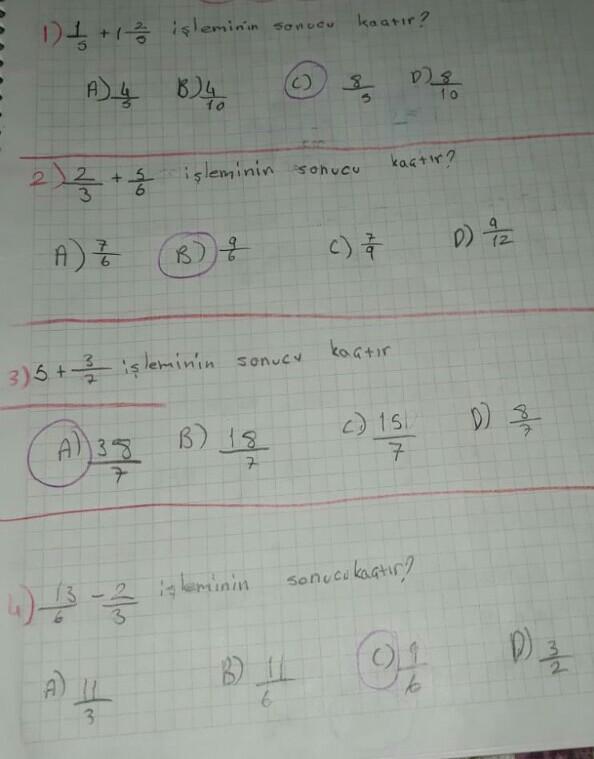 1) 1/5 + 1 2/5 işleminin sonucu kaçtır?
A) 4/5 B) 4/10 C) 8/5 D) 8/10
2) 2/3 + 5/6 işleminin sonucu kaçtır?
A) 7/6 B) 9/6 C) 7/9 D) 9/12
3) 5 + 3/7 işleminin sonucu kaçtır
A) 38/7 B) 18/7 C) 15/7 D) 8/7
4) 13/6 - 2/3 işleminin sonucu kaçtır?
A) 11/3 B) 11/6 C) 9/6 D) 3/2